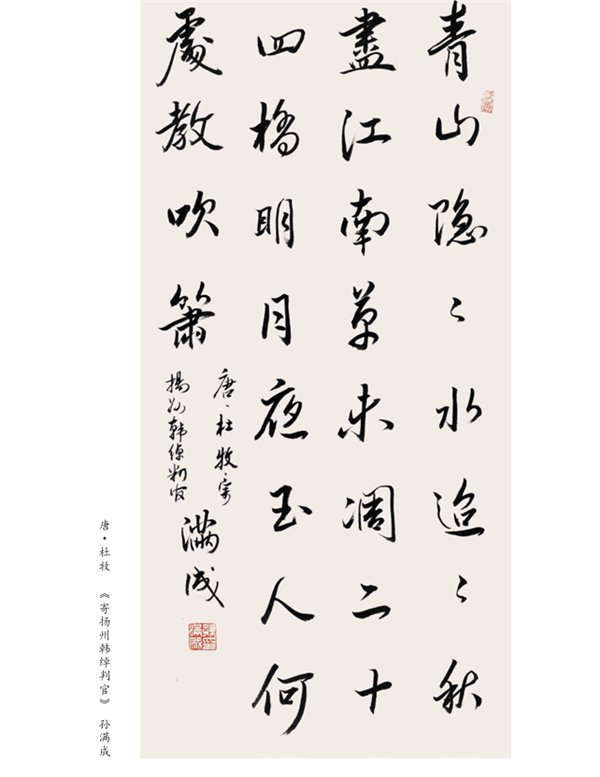 青山隐〻水迢〻秋
盡江南草未凋二十
四橋明月夜玉人何
處教吹簫
唐·杜牧·寄
揚州韩绰判官
满成
唐·杜牧 《寄扬州韩绰判官》 孙满成